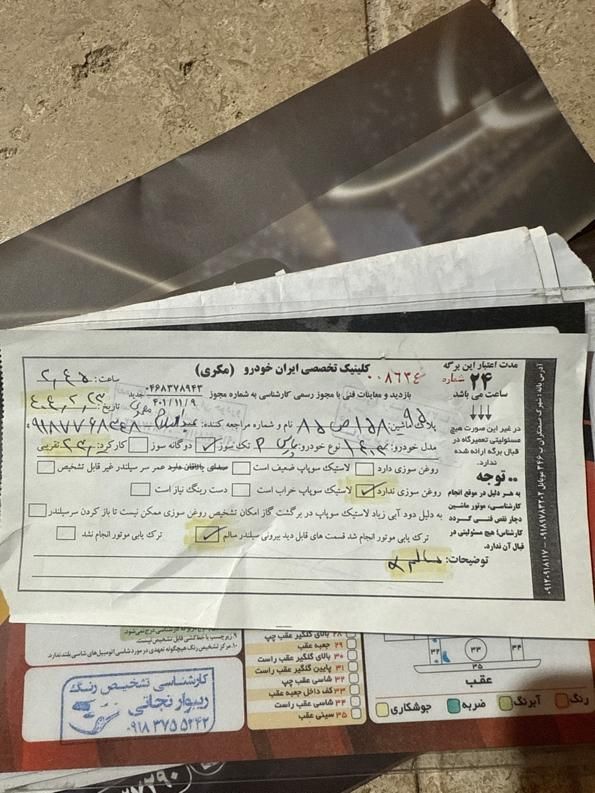 کلینیک تخصصی ایران خودرو (مکری)
مدت اعتبار این برگه
۲۴
ساعت می باشد
شماره ۰۰۸۶۳۴
ساعت: ۲,۴۵
بازدید و معاینات فنی با مجوز رسمی کارشناسی به شماره مجوز ۰۴۶۸۳۷۸۹۴۳
جدید ۴۰۱/۱۱/۹
تاریخ:
پلاک ماشین:
نام و شماره مراجعه کننده:
مدل خودرو:
نوع خودرو:
تک سوز
دوگانه سوز
کارکرد:
تقریبی
روغن سوزی دارد
لاستیک سوپاپ ضعیف است
صدای یاتاقان دارد
عمر سر سیلندر غیر قابل تشخیص
روغن سوزی ندارد
لاستیک سوپاپ خراب است
دست رینگ نیاز است
به دلیل دود آبی زیاد لاستیک سوپاپ در برگشت گاز امکان تشخیص روغن سوزی ممکن نیست تا باز کردن سرسیلندر
ترک یابی موتور انجام شد قسمت های قابل دید بیرونی سیلندر سالم
ترک یابی موتور انجام نشد
توضیحات: سالم
در غیر این صورت هیچ
مسئولیتی تعمیرگاه در
قبال برگه ارائه شده
ندارد.
توجه
به هر دلیل در موقع انجام
کارشناسی، موتور ماشین
دچار نقص فنی گردد
کارشناس هیچ مسئولیتی در
قبال آن ندارد.
کارشناسی تشخیص رنگ
ریبوار نجاتی
۰۹۱۸ ۳۷۵ ۵۲۴۲
۲۸ بالای گلگیر عقب چپ
۲۹ جعبه عقب
۳۰ بالای گلگیر عقب راست
۳۱ پایین گلگیر عقب راست
۳۲ شاسی عقب چپ
۳۳ کف داخل جعبه عقب
۳۴ شاسی عقب راست
۳۵ سینی عقب
۳۲
۳۳
۳۴
۳۵
عقب
رنگ
آبرنگ
ضربه
جوشکاری